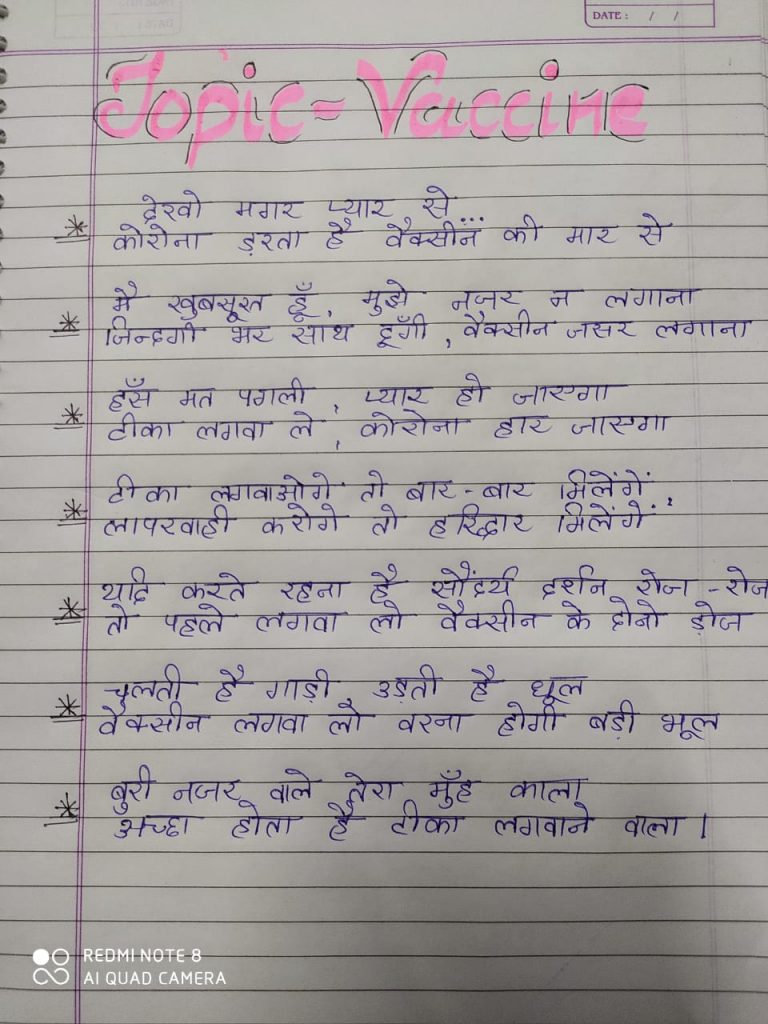 DATE : / /
Topic - Vaccine
* देखो मगर प्यार से...
कोरोना ड़रता है वैक्सीन की मार से
* मै खुबसूरत हूँ, मुझे नजर न लगाना
जिन्दगी भर साथ दूँगी, वैक्सीन जरूर लगाना
* हँस मत पगली, प्यार हो जाएगा
टीका लगवा ले, कोरोना हार जाएगा
* टीका लगवाओगे तो बार-बार मिलेंगें,
लापरवाही करोगे तो हरिद्वार मिलेंगें
* यदि करते रहना है सौंदर्य दर्शन रोज-रोज
तो पहले लगवा लो वैक्सीन के दोनो ड़ोज
* चलती है गाड़ी उड़ती है धूल
वैक्सीन लगवा लो वरना होगी बड़ी भूल
* बुरी नजर वाले तेरा मुँह काला
अच्छा होता है टीका लगवाने वाला।
REDMI NOTE 8
AI QUAD CAMERA